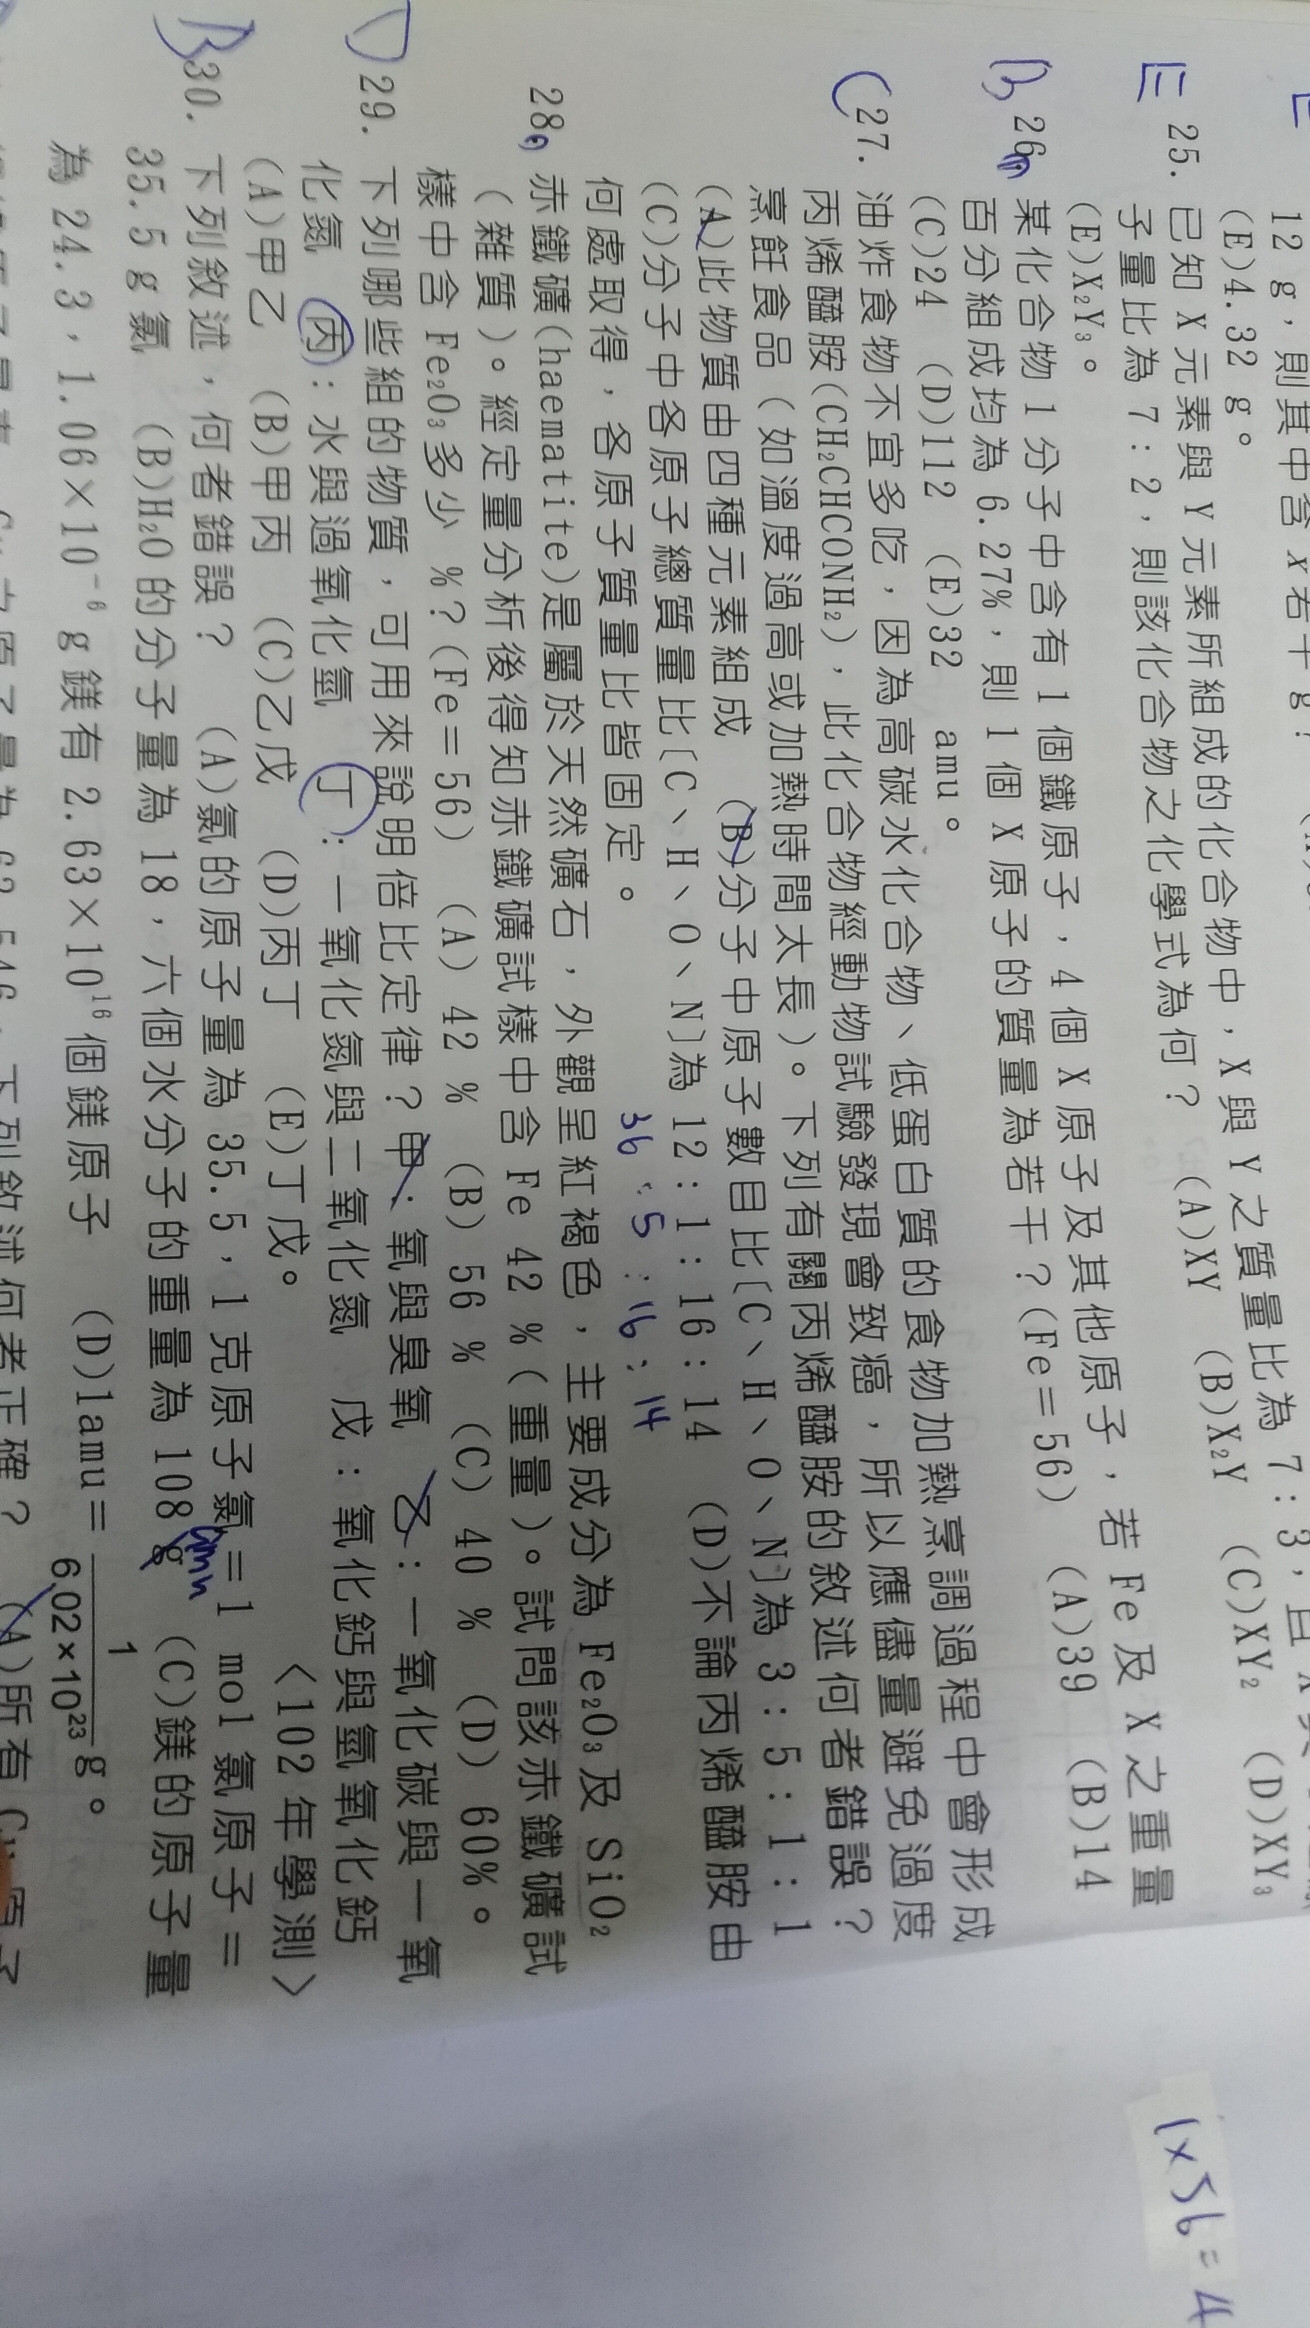 12 g，則其中含 x 若干 g？
(E)4.32 g。
E 25. 已知 X 元素與 Y 元素所組成的化合物中，X 與 Y 之質量比為 7：3，且 X
子量比為 7：2，則該化合物之化學式為何？ (A)XY (B)X₂Y (C)XY₂ (D)XY₃
(E)X₂Y₃。
B 26. 某化合物 1 分子中含有 1 個鐵原子，4 個 X 原子及其他原子，若 Fe 及 X 之重量
百分組成均為 6.27%，則 1 個 X 原子的質量為若干？(Fe＝56) (A)39 (B)14
(C)24 (D)112 (E)32 amu。
C 27. 油炸食物不宜多吃，因為高碳水化合物、低蛋白質的食物加熱烹調過程中會形成
丙烯醯胺(CH₂CHCONH₂)，此化合物經動物試驗發現會致癌，所以應儘量避免過度
烹飪食品（如溫度過高或加熱時間太長）。下列有關丙烯醯胺的敘述何者錯誤？
(A)此物質由四種元素組成 (B)分子中原子數目比〔C、H、O、N〕為 3：5：1：1
(C)分子中各原子總質量比〔C、H、O、N〕為 12：1：16：14 (D)不論丙烯醯胺由
36：5：16：14
何處取得，各原子質量比皆固定。
28. 赤鐵礦(haematite)是屬於天然礦石，外觀呈紅褐色，主要成分為 Fe₂O₃ 及 SiO₂
（雜質）。經定量分析後得知赤鐵礦試樣中含 Fe 42 %（重量）。試問該赤鐵礦試
樣中含 Fe₂O₃ 多少 %？(Fe＝56) (A) 42 % (B) 56 % (C) 40 % (D) 60%。
D 29. 下列哪些組的物質，可用來說明倍比定律？甲：氧與臭氧 乙：一氧化碳與一氧
化氮 丙：水與過氧化氫 丁：一氧化氮與二氧化氮 戊：氧化鈣與氫氧化鈣
(A)甲乙 (B)甲丙 (C)乙戊 (D)丙丁 (E)丁戊。 〈102 年學測〉
B 30. 下列敘述，何者錯誤？ (A)氯的原子量為 35.5，1 克原子氯＝1 mol 氯原子＝
35.5 g 氯 (B)H₂O 的分子量為 18，六個水分子的重量為 108 g amu (C)鎂的原子量
為 24.3，1.06×10⁻⁶ g 鎂有 2.63×10¹⁶ 個鎂原子 (D)1amu＝1/6.02×10²³ g。
下列敘述何者正確？ (A)所有
1×56=4